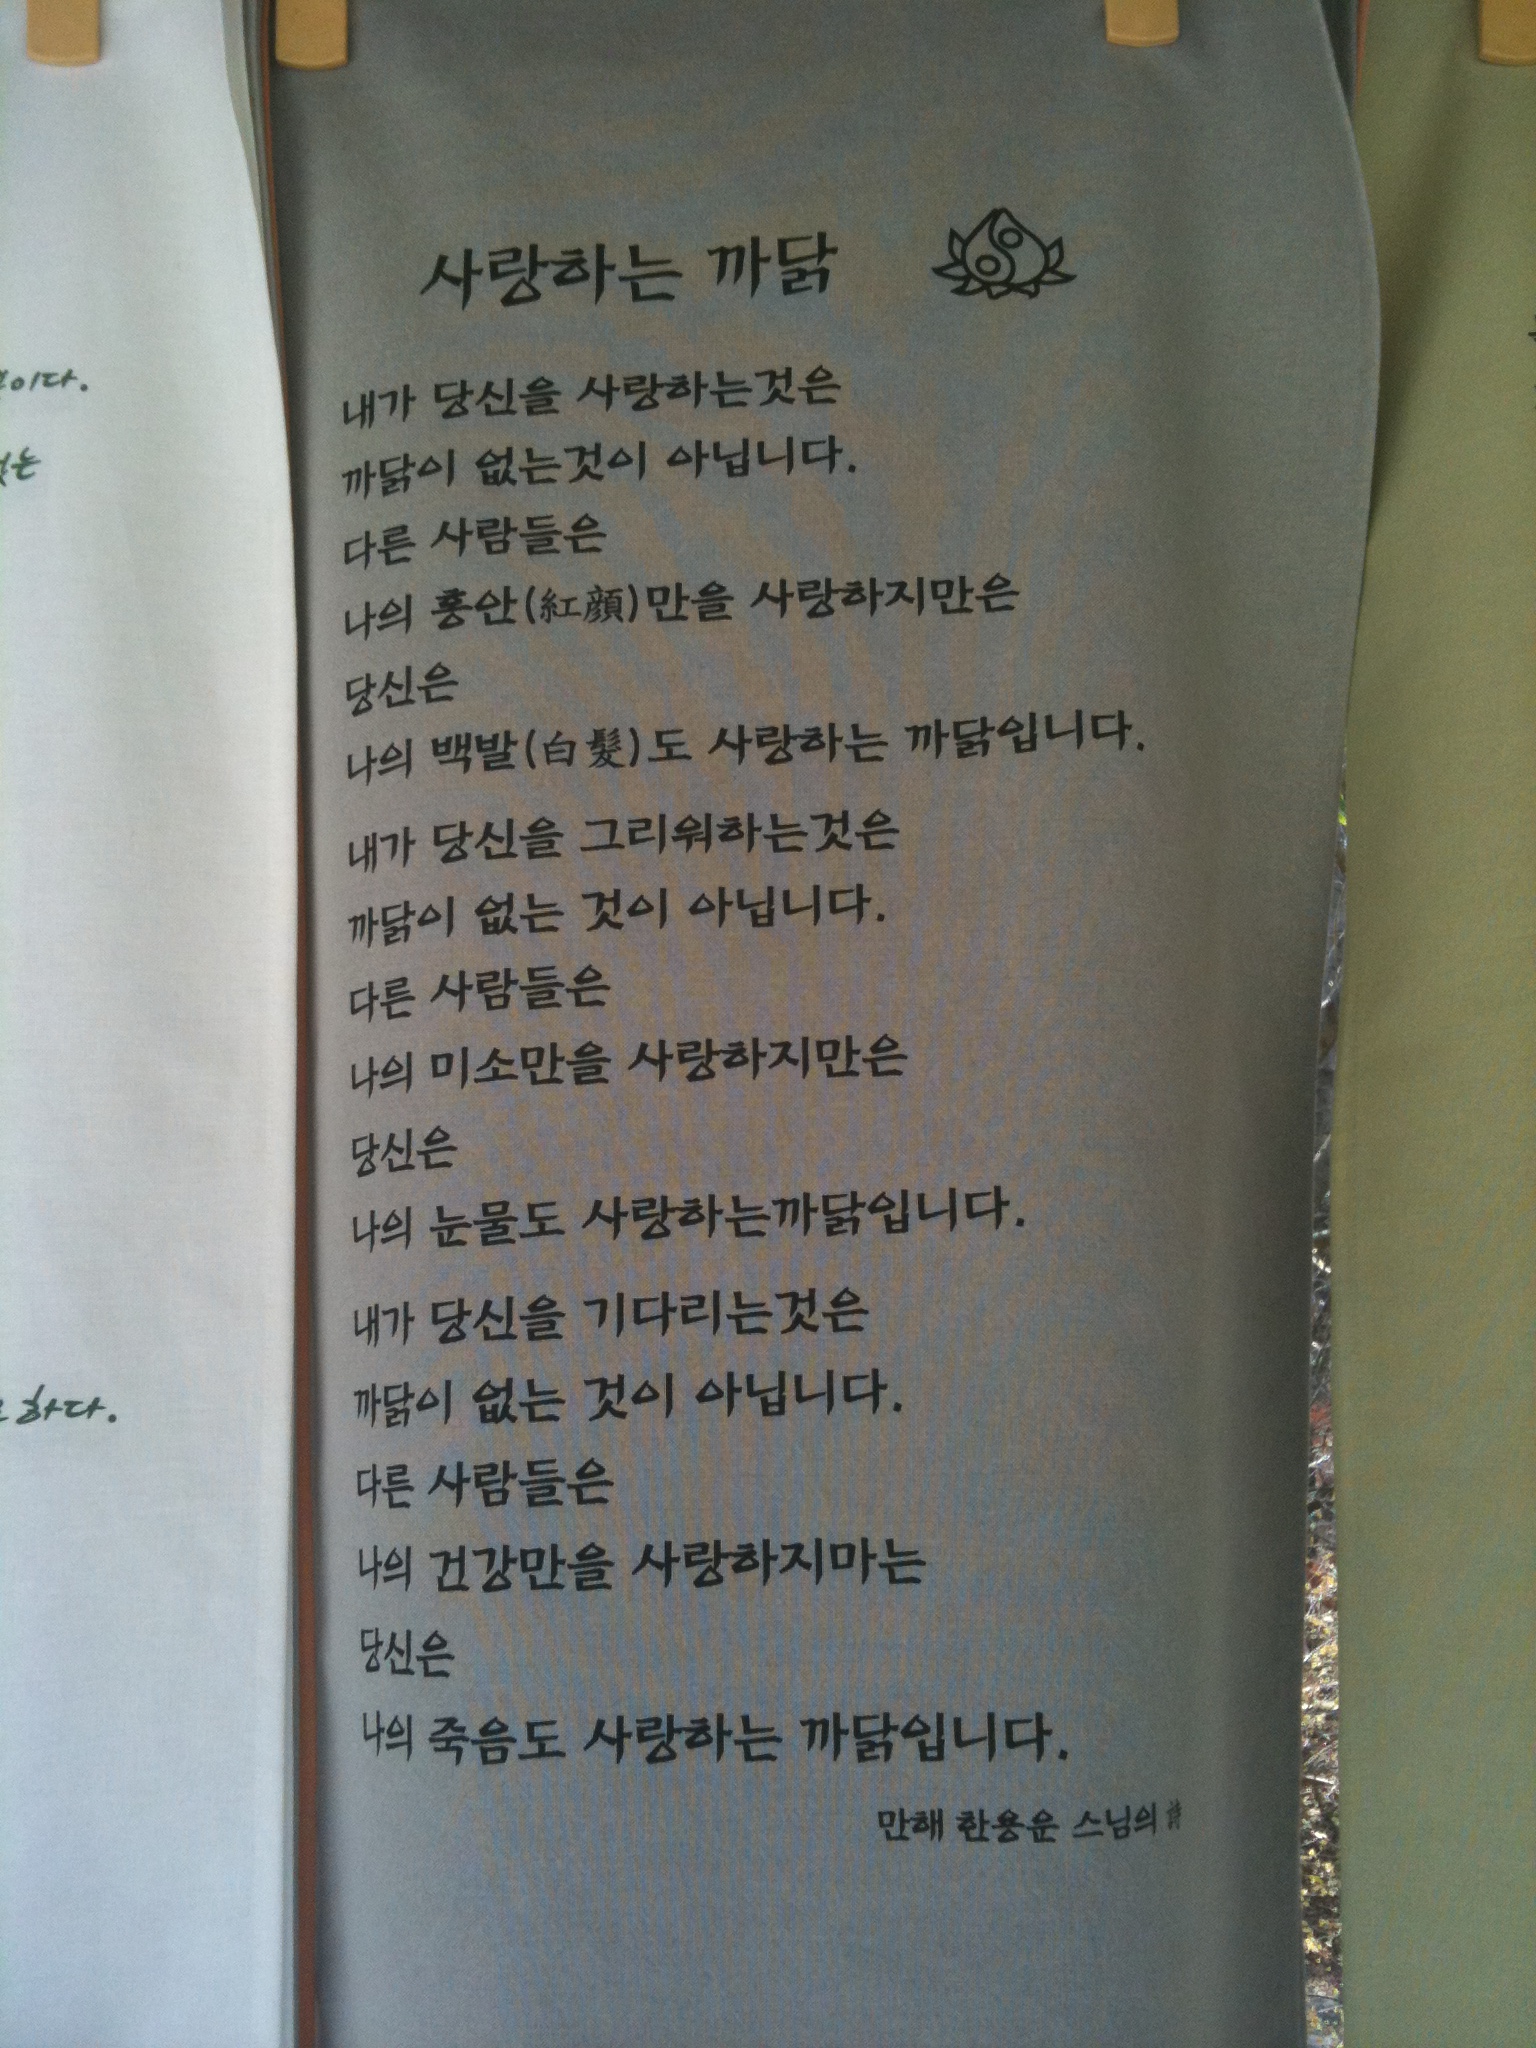 사랑하는 까닭
내가 당신을 사랑하는것은
까닭이 없는것이 아닙니다.
다른 사람들은
나의 홍안(紅顔)만을 사랑하지만은
당신은
나의 백발(白髮)도 사랑하는 까닭입니다.
내가 당신을 그리워하는것은
까닭이 없는 것이 아닙니다.
다른 사람들은
나의 미소만을 사랑하지만은
당신은
나의 눈물도 사랑하는까닭입니다.
내가 당신을 기다리는것은
까닭이 없는 것이 아닙니다.
다른 사람들은
나의 건강만을 사랑하지마는
당신은
나의 죽음도 사랑하는 까닭입니다.
만해 한용운 스님의 詩
하다.